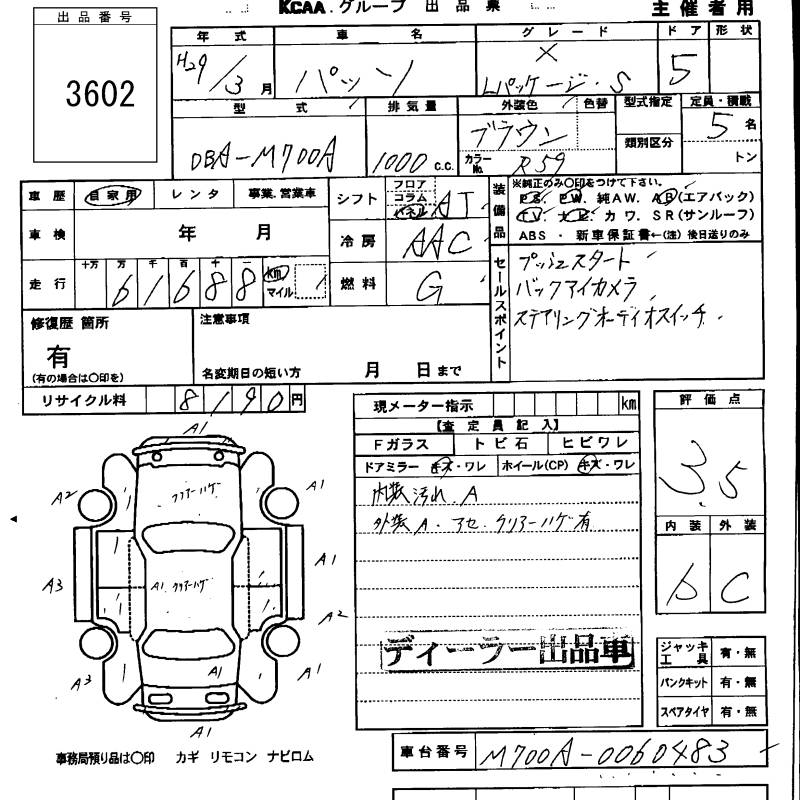 KCAA.グループ 出品票
主催者用
出品番号
3602
年式 車名 グレード ドア 形状
H29/3月 パッソ X Lパッケージ・S 5
型式 排気量 外装色 色替 型式指定 定員・積載
DBA-M700A 1000c.c. ブラウン カラーNo. R59 類別区分 5名
トン
車歴 自家用 レンタ 事業.営業車
シフト フロア コラム パネル AT
装備品 ※純正のみ○印をつけて下さい。
PS. PW. 純AW. AB(エアバック)
TV. ナビ. カワ. SR(サンルーフ)
ABS・新車保証書←(注)後日送りのみ
車検 年 月
冷房 AAC
走行 十万 万 千 百 十
61688 km マイル
燃料 G
セールスポイント
プッシュスタート
バックアイカメラ
ステアリングオーディオスイッチ
修復歴 箇所
有
(有の場合は○印を)
注意事項
名変期日の短い方 月 日まで
リサイクル料 8190円
現メーター指示 km
【査定員記入】
Fガラス トビ石 ヒビワレ
ドアミラー キズ・ワレ ホイール(CP) キズ・ワレ
内装 汚れ.A
外装 A.アセ.クリアーハゲ有
ディーラー出品車
評価点
3.5
内装 外装
b C
ジャッキ工具 有・無
パンクキット 有・無
スペアタイヤ 有・無
A1
クリアーハゲ
A2 A1
A3 A1 クリアーハゲ A1
A2
A3 A1 A1
A1
事務局預り品は○印 カギ リモコン ナビロム
車台番号 M700A-0060483